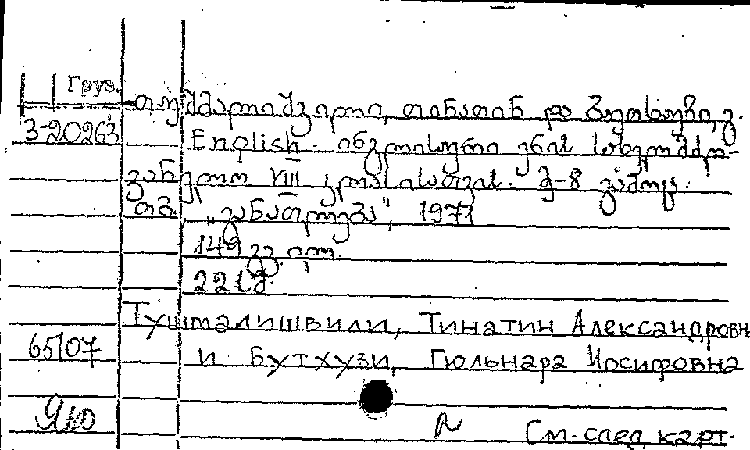 Груз.
თუშმალიშვილი, თინათინ და ბუთხუზი, გ.
3-20263
English. ინგლისური ენის სახელმძღ-
ვანელო VIII კლასისათვის. მე-8 გამოც.
თბ. „განათლება", 1971
149 გვ. ილ.
Тушмалишвили, Тинатин Александровн
65107
и Бутхузи, Гюльнара Иосифовна
См. след. карт.